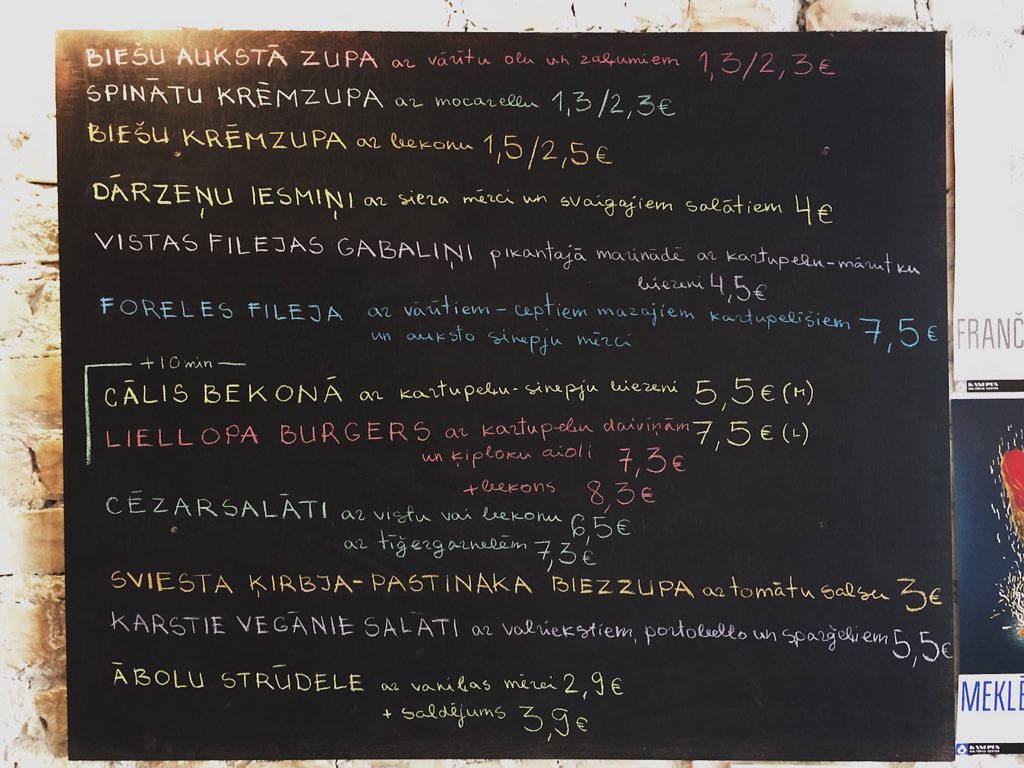 BIEŠU AUKSTĀ ZUPA ar vārītu olu un zaļumiem 1,3/2,3€
SPINĀTU KRĒMZUPA ar mocarellu 1,3/2,3€
BIEŠU KRĒMZUPA ar bekonu 1,5/2,5€
DĀRZEŅU IESMIŅI ar siera mērci un svaigajiem salātiem 4€
VISTAS FILEJAS GABALIŅI pikantajā marinādē ar kartupeļu-mārrutku
biezeni 4,5€
FORELES FILEJA ar vārītiem-ceptiem mazajiem kartupelīšiem 7,5€
un auksto sinepju mērci
+10min
CĀLIS BEKONĀ ar kartupeļu-sinepju biezeni 5,5€ (M)
LIELLOPA BURGERS ar kartupeļu daiviņām 7,5€ (L)
un ķiploku aioli 7,3€
+bekons 8,3€
CĒZARSALĀTI ar vistu vai bekonu 6,5€
ar tīģergarnelēm 7,3€
SVIESTA ĶIRBJA-PASTINAKA BIEZZUPA ar tomātu salsu 3€
KARSTIE VEGĀNIE SALĀTI ar valriekstiem, portobello un sparģeļiem 5,5€
ĀBOLU STRŪDELE ar vaniļas mērci 2,9€
+ saldējums 3,9€
FRANČ
KANEPES
MEKLĒ
KANEPES